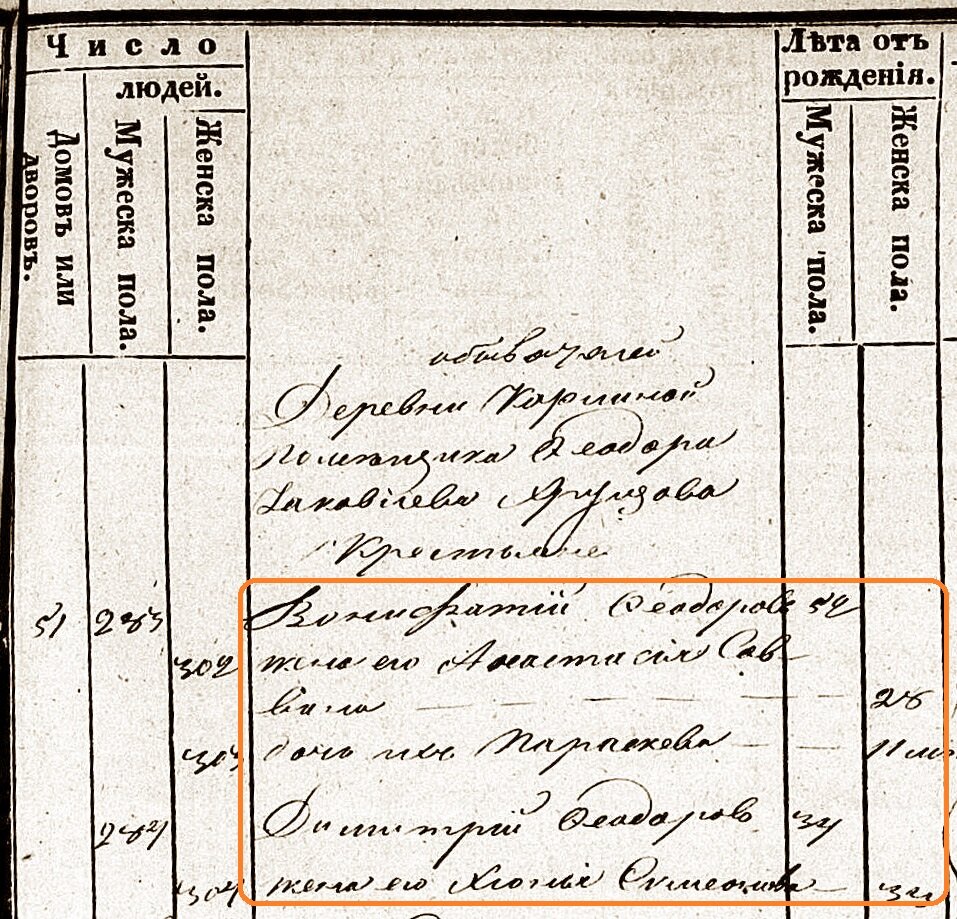 Число
людей.
Лѣта отъ
рожденія.
Домовъ или
дворовъ.
Мужеска пола.
Женска пола.
Мужеска пола.
Женска пола.
обывателей
Деревни Карпиной
помѣщика Ѳеодора
Іаковлева Хрущова
Крестьяне
51 283 Вонифатій Ѳеодоровъ
302 жена его Анастасія Сав-
вина 28
303 дочь ихъ Параскева
284 Димитрій Ѳеодоровъ 34
304 жена его Хіонія Симеонова